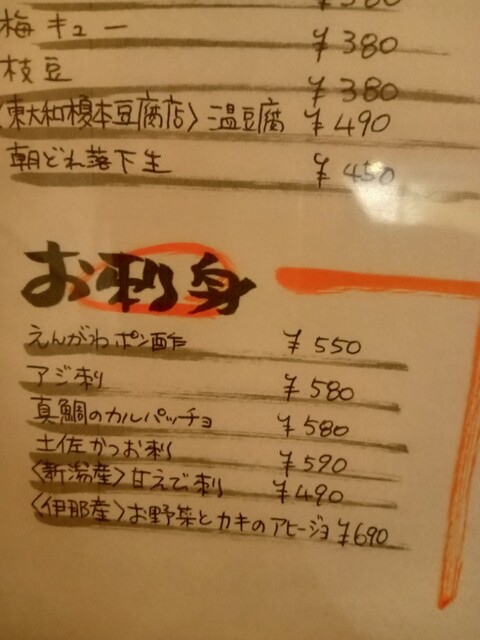 梅キュー ¥380
枝豆 ¥380
〈東大和榎本豆腐店〉温豆腐 ¥490
朝どれ落下生 ¥450
お刺身
えんがわポン酢 ¥550
アジ刺 ¥580
真鯛のカルパッチョ ¥580
土佐かつお刺 ¥590
〈新潟産〉甘えび刺 ¥490
〈伊那産〉お野菜とカキのアヒージョ ¥690